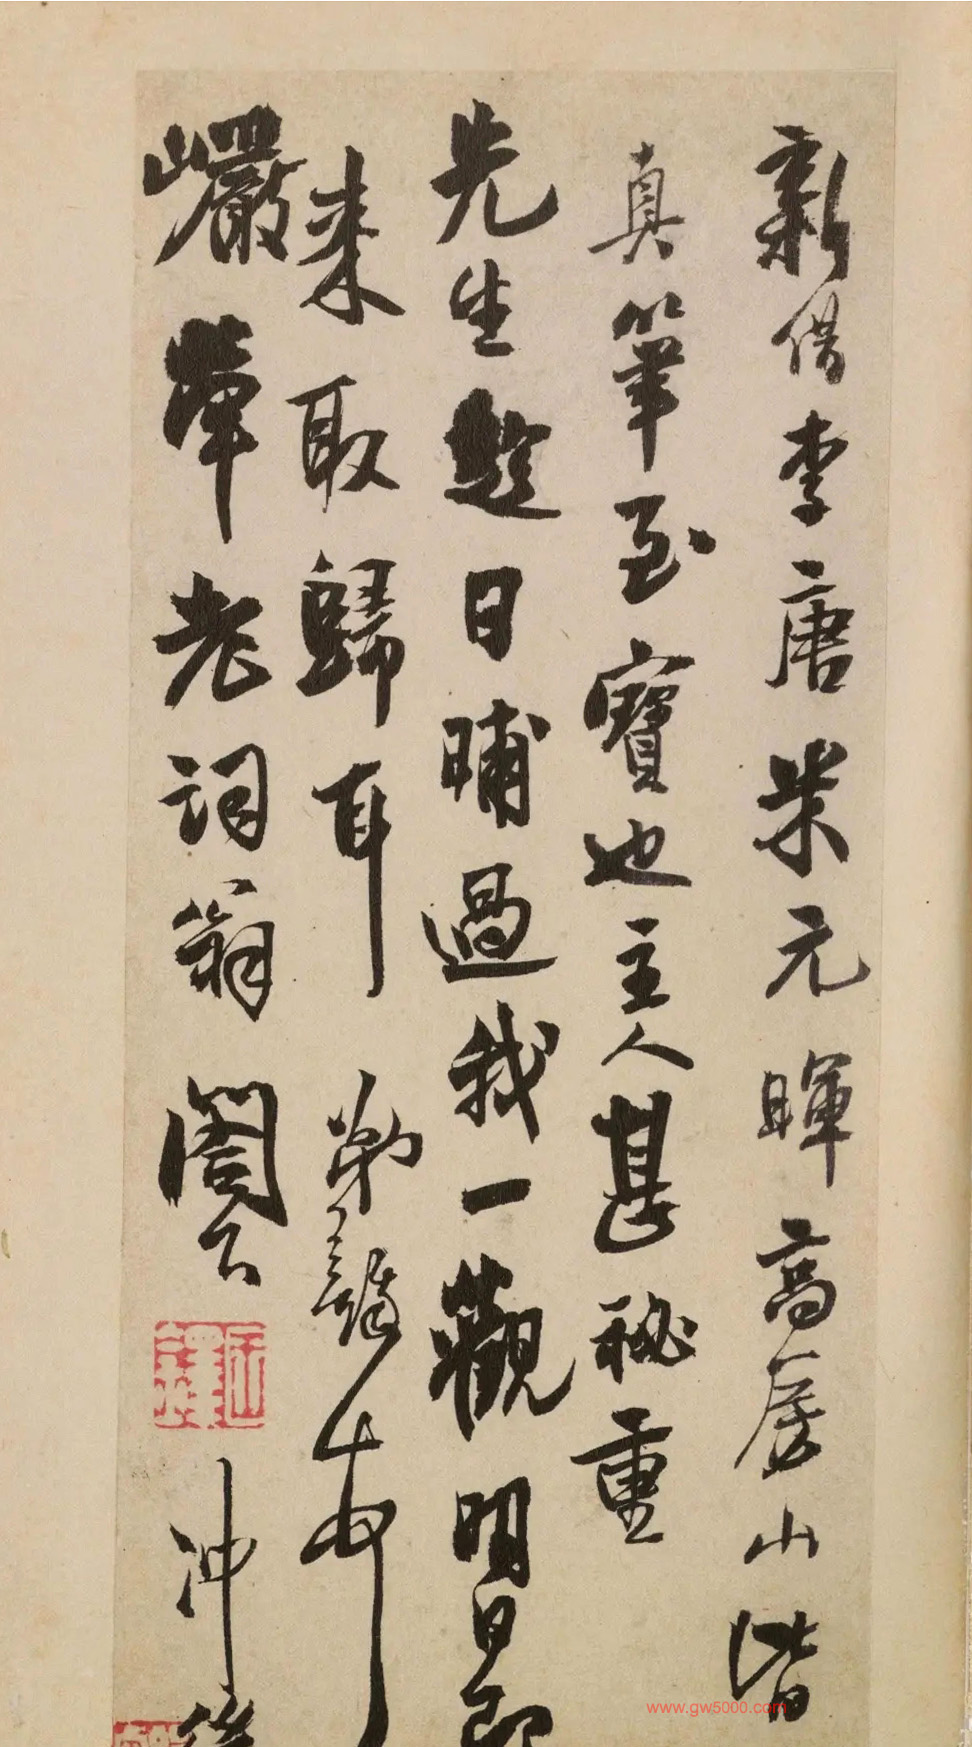 新借李唐米元暉高房山皆
真筆至寶也主人甚秘重
先生趁日晡過我一觀明日即
來取歸耳 弟 頓首
巖犖老詞翁 閣下 冲
www.gw5000.com